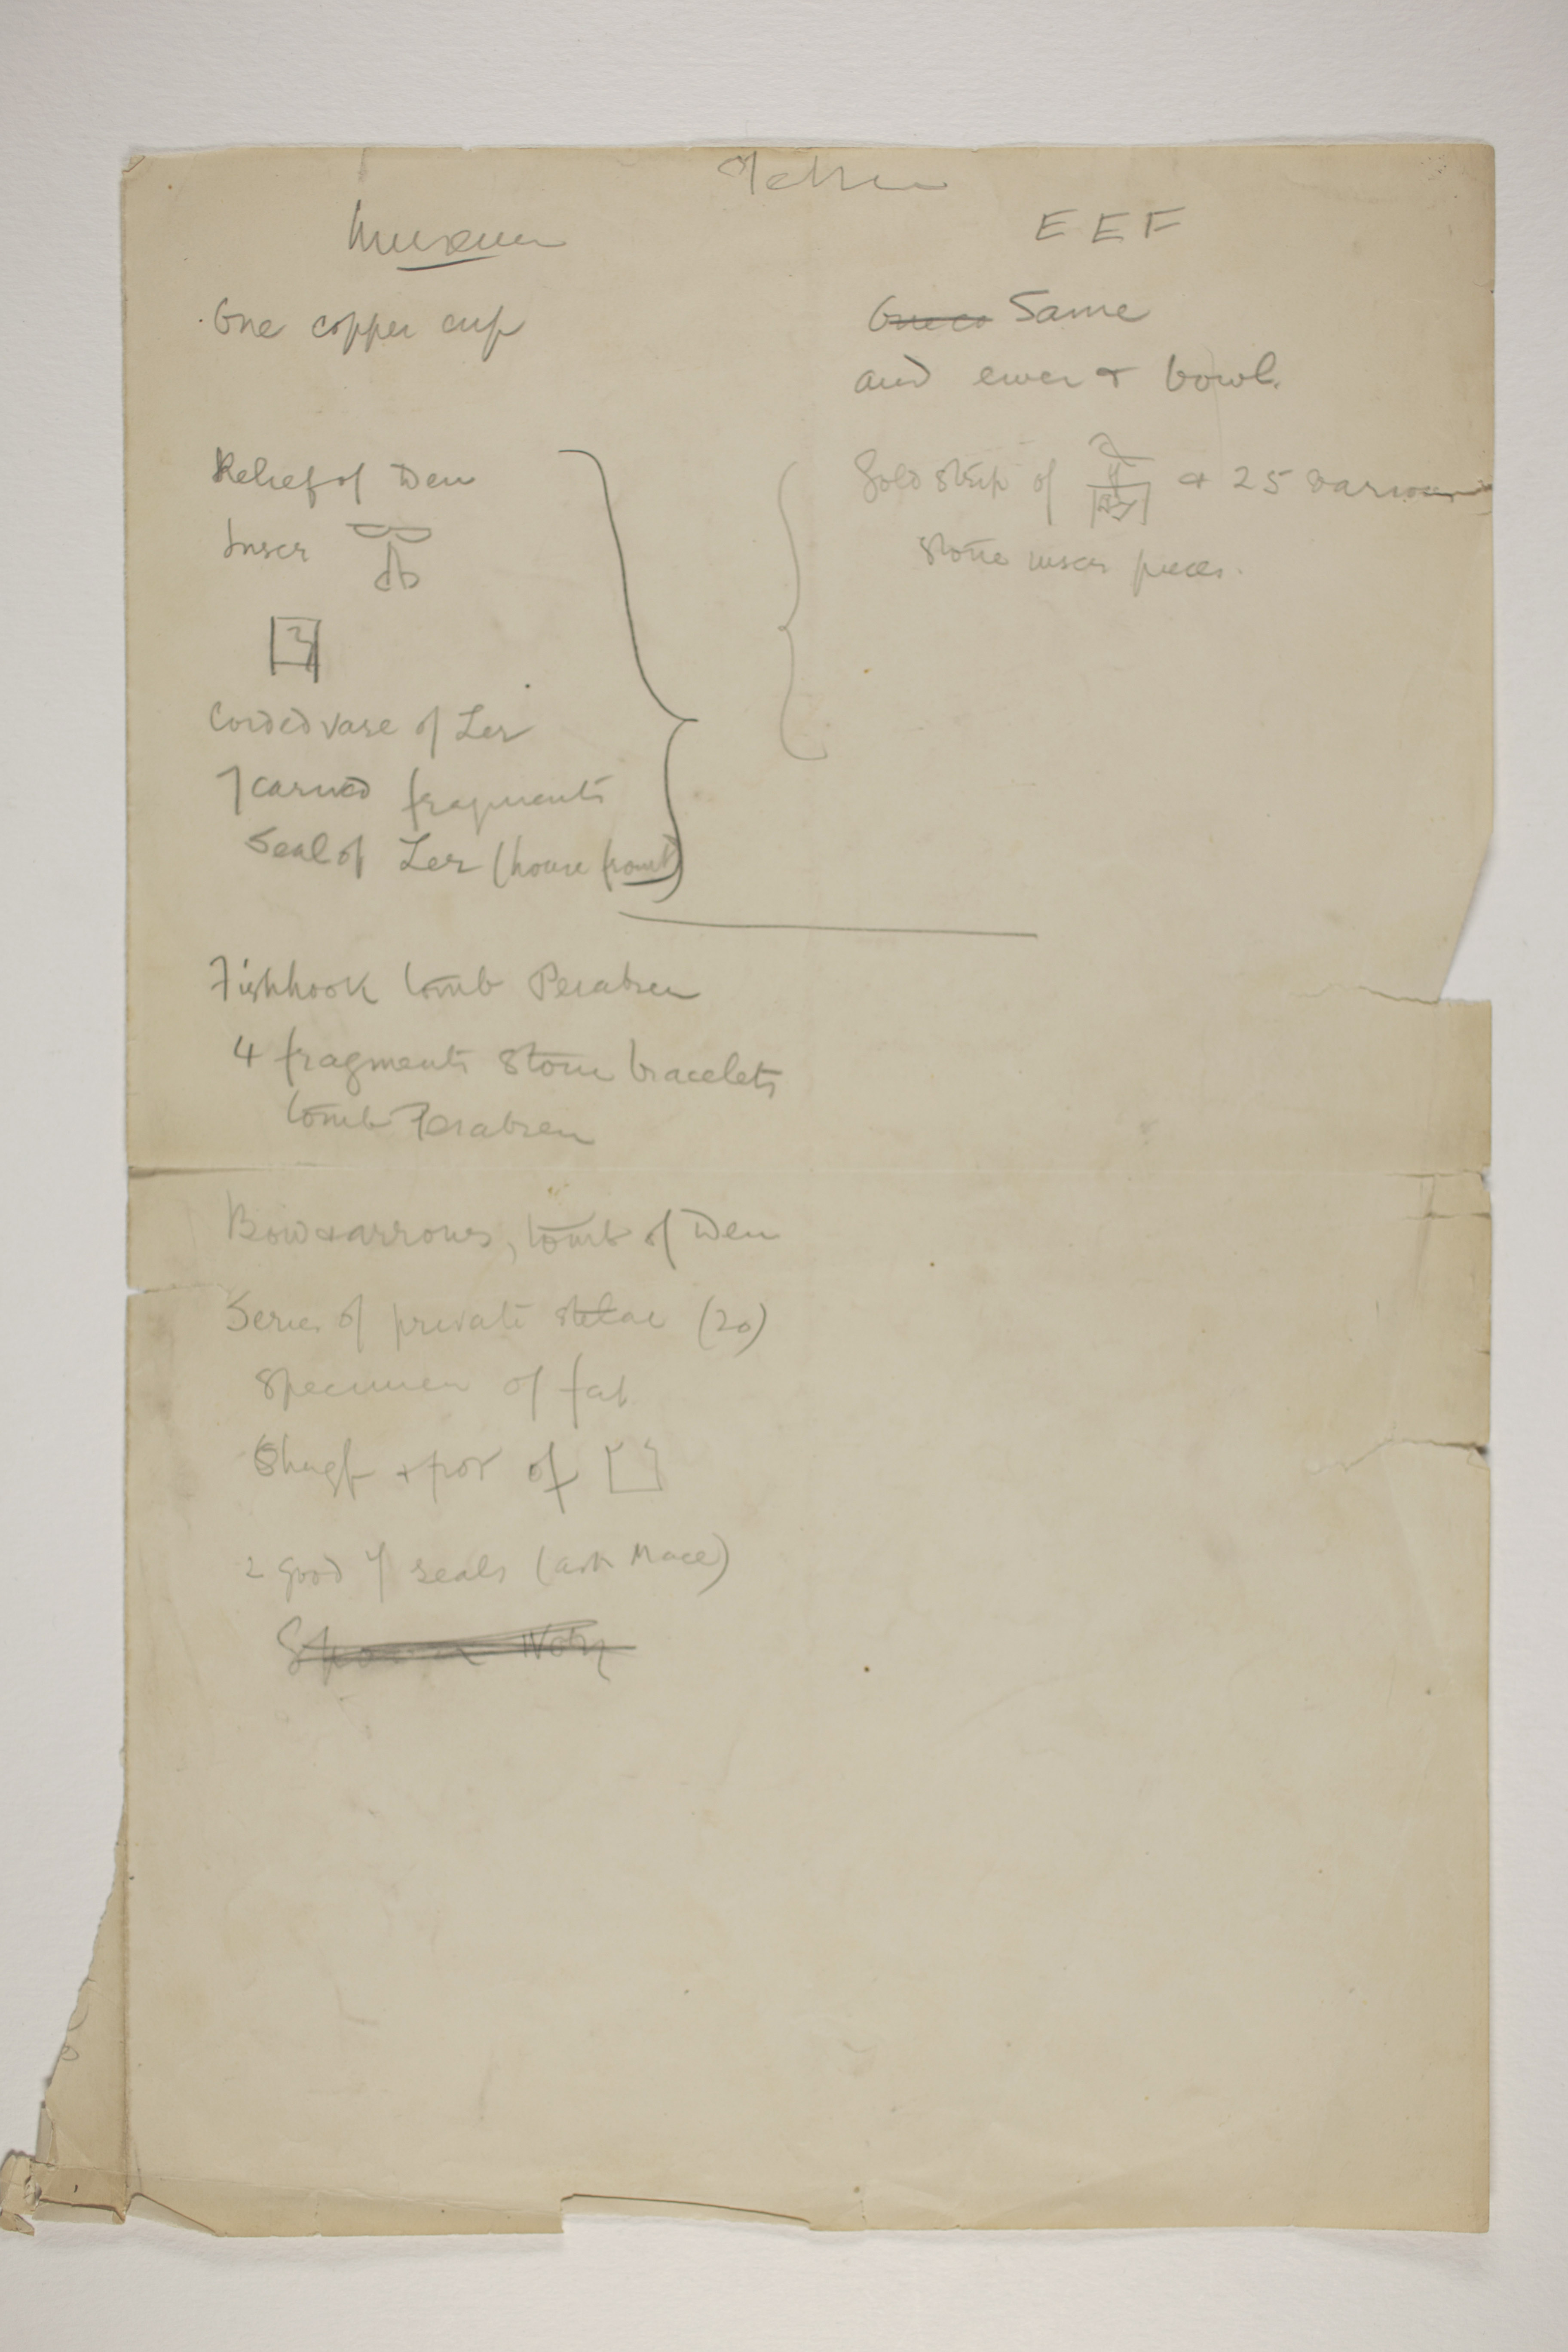 Museum
One copper cup
Relief of Den
Inscr
Corded vase of Zer
7 carved fragments
Seal of Zer (house front)
Fishhook tomb Perabsen
4 fragments stone bracelets
tomb Perabsen
Bow & arrows, tomb of Den
Series of private stelae (20)
Specimen of fat
& pot of
2 good seals (ask Mace)
EEF
Same
and ewer & bowl.
Gold strip of & 25 various
stone inscr pieces.